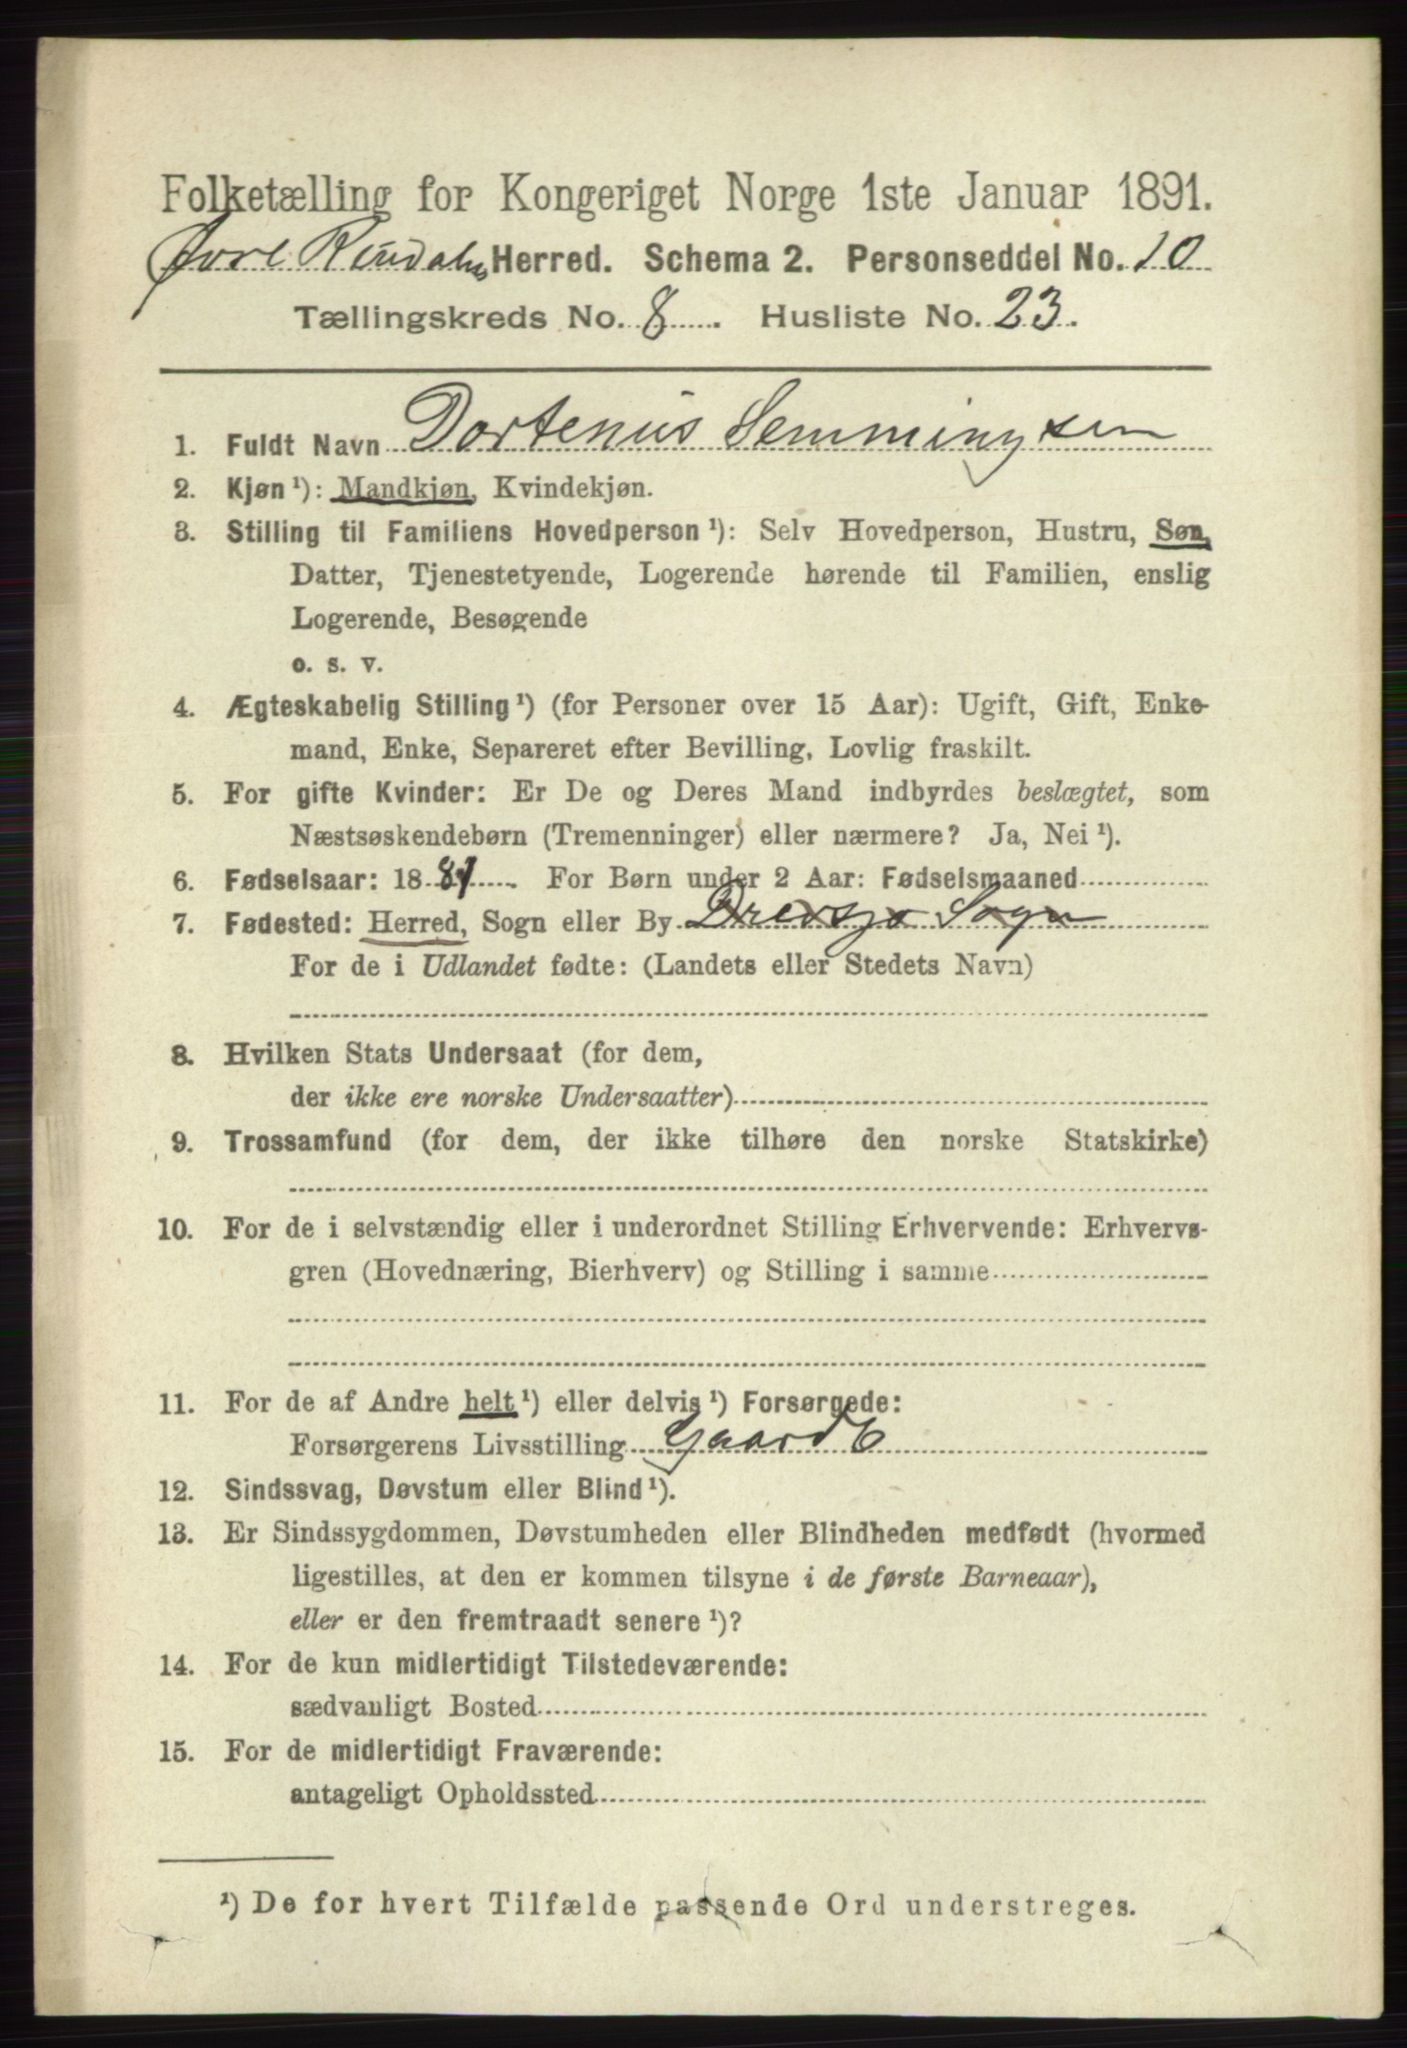 Folketælling for Kongeriget Norge 1ste Januar 1891.
Øvre Rendalens Herred. Schema 2. Personseddel No. 10
Tællingskreds No. 8 . Husliste No. 23.
1. Fuldt Navn Dortenius Semmingsen
2. Kjøn ¹): Mandkjøn, Kvindekjøn.
3. Stilling til Familiens Hovedperson ¹): Selv Hovedperson, Hustru, Søn,
Datter, Tjenestetyende, Logerende hørende til Familien, enslig
Logerende, Besøgende
o. s. v.
4. Ægteskabelig Stilling ¹) (for Personer over 15 Aar): Ugift, Gift, Enke-
mand, Enke, Separeret efter Bevilling, Lovlig fraskilt.
5. For gifte Kvinder: Er De og Deres Mand indbyrdes beslægtet, som
Næstsøskendebørn (Tremenninger) eller nærmere? Ja, Nei ¹).
6. Fødselsaar: 1881 . For Børn under 2 Aar: Fødselsmaaned
7. Fødested: Herred, Sogn eller By Drevsjø Sogn
For de i Udlandet fødte: (Landets eller Stedets Navn)
8. Hvilken Stats Undersaat (for dem,
der ikke ere norske Undersaatter)
9. Trossamfund (for dem, der ikke tilhøre den norske Statskirke)
10. For de i selvstændig eller i underordnet Stilling Erhvervende: Erhvervs-
gren (Hovednæring, Bierhverv) og Stilling i samme
11. For de af Andre helt ¹) eller delvis ¹) Forsørgede:
Forsørgerens Livsstilling Gaardb
12. Sindssvag, Døvstum eller Blind ¹).
13. Er Sindssygdommen, Døvstumheden eller Blindheden medfødt (hvormed
ligestilles, at den er kommen tilsyne i de første Barneaar),
eller er den fremtraadt senere ¹)?
14. For de kun midlertidigt Tilstedeværende:
sædvanligt Bosted
15. For de midlertidigt Fraværende:
antageligt Opholdssted
¹) De for hvert Tilfælde passende Ord understreges.